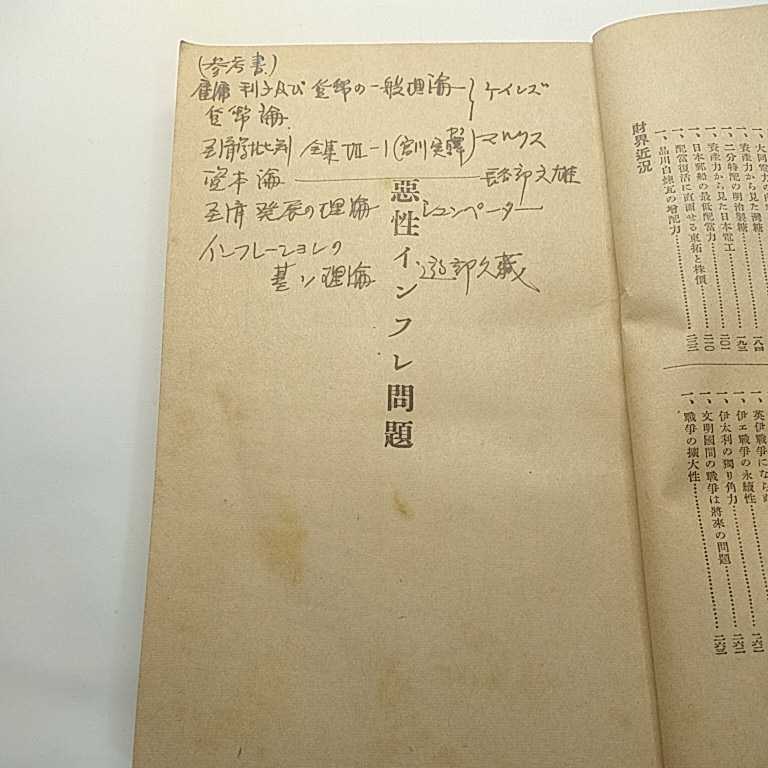 (参考書)
雇傭利子及び貨幣の一般理論 ケインズ
貨幣論
経済学批判 全集Ⅶ-1(宮川実譯)マルクス
資本論 長谷部文雄
経済発展の理論 シュンペーター
インフレーションの
基ソ理論 渡部久蔵
惡性インフレ問題
財界近況
一、大同電力の
一、資產力から見た灣糖……一八四
一、二分特配の明治製糖……一九三
一、資產力から見た日本電工……二〇一
一、日本郵船の最低配當力……二一〇
一、配當復活に直面せる東拓と株價
一、品川白煉瓦の增配力……二二二
一、英伊戰爭になら
一、伊エ戰爭の永續性……二六一
一、伊太利の獨り角力……二六一
一、文明國間の戰爭は將來の問題……二六二
一、戰爭の擴大性……二六三